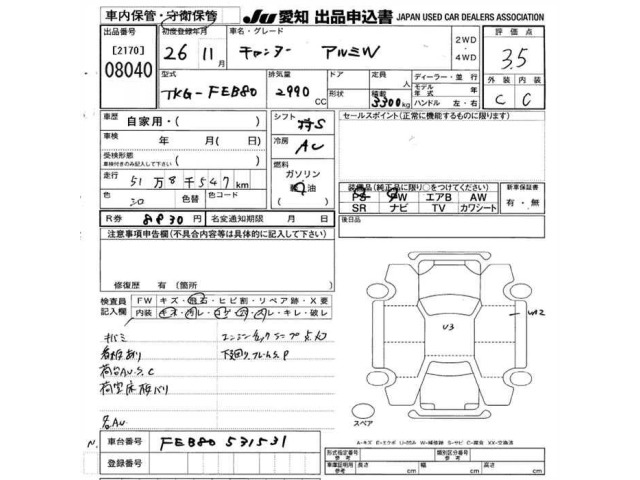 車内保管・守衛保管
JU 愛知 出品申込書 JAPAN USED CAR DEALERS ASSOCIATION
出品番号 初度登録年月 車名・グレード 2WD・4WD 評価点
[2170] 08040 26 11月 キャンター アルミW 3.5
型式 排気量 ドア 定員 人 ディーラー・並行 外装 内装
TKG-FEB80 2990cc 形状 積載 3300kg モデル年式 年 ハンドル 左・右 C C
車歴 自家用・( ) シフト セールスポイント(正常に機能するものに限ります)
車検 年 月 日( ) 冷房 AC
受検形態 車検付きのみ記入して下さい ( ) 燃料
走行 51万8千547km ガソリン
色 色替 色コード 軽油
30 ( )
装備品(純正品に限り○をつけてください) 新車保証書
PS PW エアB AW 有・無
SR ナビ TV カワシート
R券 8830円 名変通知期限 月 日 後日品
注意事項申告欄(不具合内容等は具体的に記入して下さい)
修復歴 有 (箇所 )
検査員記入欄 FW キズ・飛石・ヒビ割・リペア跡・X要
内装 キズ・汚レ・コゲ・穴・スレ・キレ・破レ
キバミ
下廻り、フレームS.P
荷台AU.S.C
U3
スペア
A=キズ
車台番号 FEB80 531531
登録番号
形式指定番号 参考 類別区分番号 参考
車庫証明用 参考 長さ cm 幅 cm 高さ cm